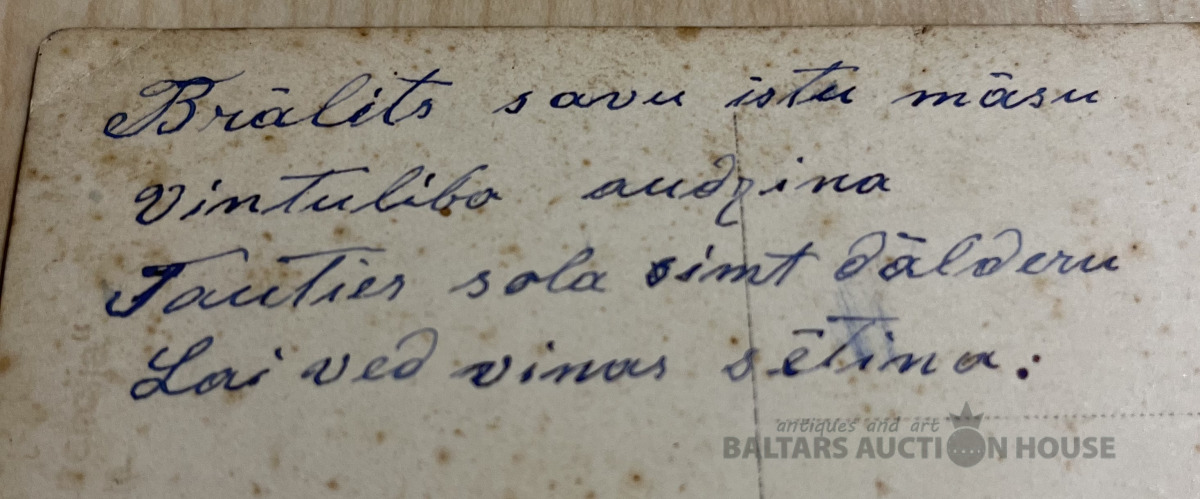 Brālits savu istu māsu
Vintuliba audzina
Tauties sola simt dālderu
Lai ved vinas sētina.
antiques and art
BALTARS AUCTION HOUSE